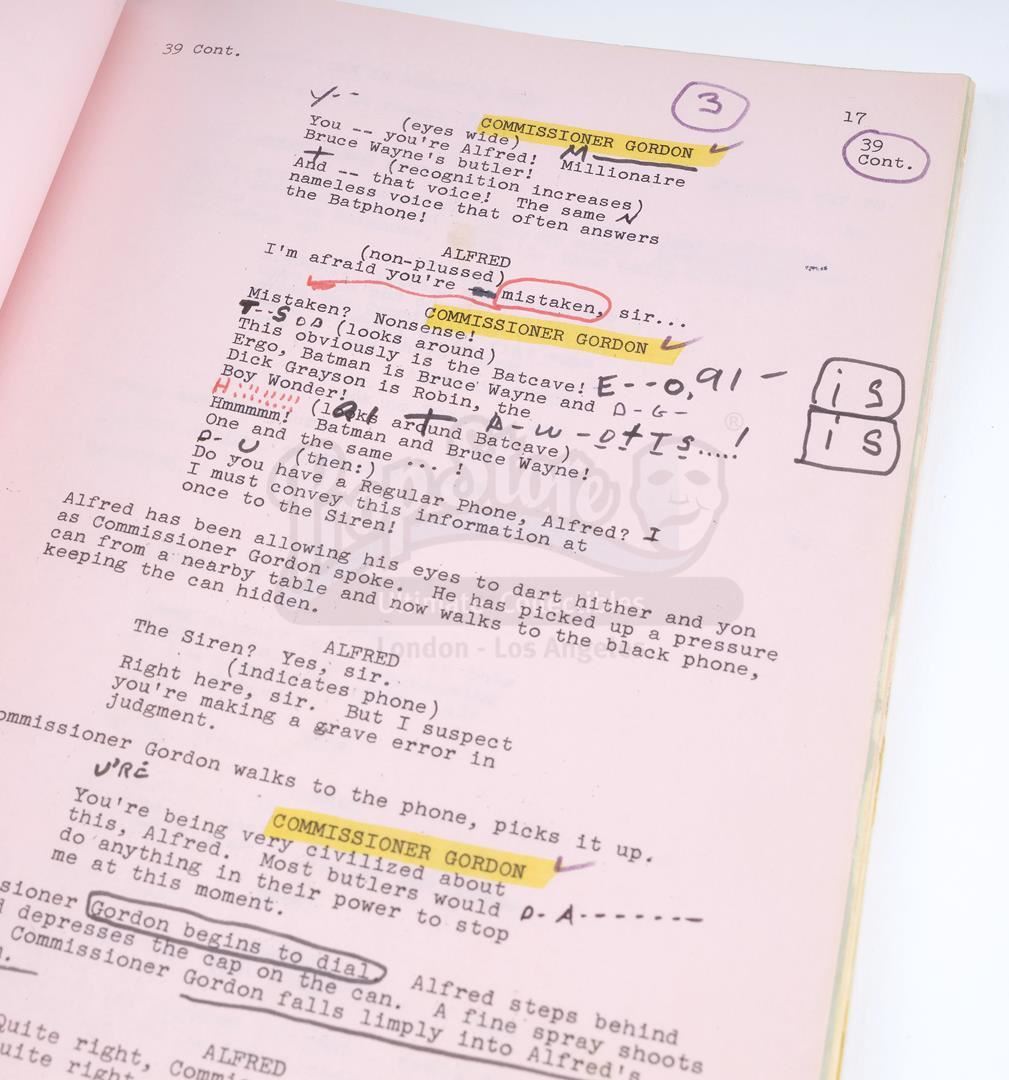 39 Cont.
3
17
39
Cont.
Y--
COMMISSIONER GORDON
(eyes wide)
You -- you're Alfred! M Millionaire
Bruce Wayne's butler!
(recognition increases)
And -- that voice! The same N
nameless voice that often answers
the Batphone!
ALFRED
(non-plussed)
I'm afraid you're mistaken, sir...
COMMISSIONER GORDON
Mistaken? Nonsense!
T--S DA (looks around)
This obviously is the Batcave! E--O,91 -
Ergo, Batman is Bruce Wayne and D-G-
Dick Grayson is Robin, the
Boy Wonder!
is
is
H (looks around Batcave)
Hmmmmm! Batman and Bruce Wayne!
One and the same ... !
D- U (then:)
Do you have a Regular Phone, Alfred? I
I must convey this information at
once to the Siren!
Alfred has been allowing his eyes to dart hither and yon
as Commissioner Gordon spoke. He has picked up a pressure
can from a nearby table and now walks to the black phone,
keeping the can hidden.
ALFRED
The Siren? Yes, sir.
(indicates phone)
Right here, sir. But I suspect
you're making a grave error in
judgment.
ommissioner Gordon walks to the phone, picks it up.
U'RE
COMMISSIONER GORDON
You're being very civilized about
this, Alfred. Most butlers would
do anything in their power to stop D-A-------
me at this moment.
sioner Gordon begins to dial Alfred steps behind
d depresses the cap on the can. A fine spray shoots
Commissioner Gordon falls limply into Alfred's
ALFRED
Quite right, Commi
uite right
Propstore
Ultimate Collectibles
London - Los Angeles
®